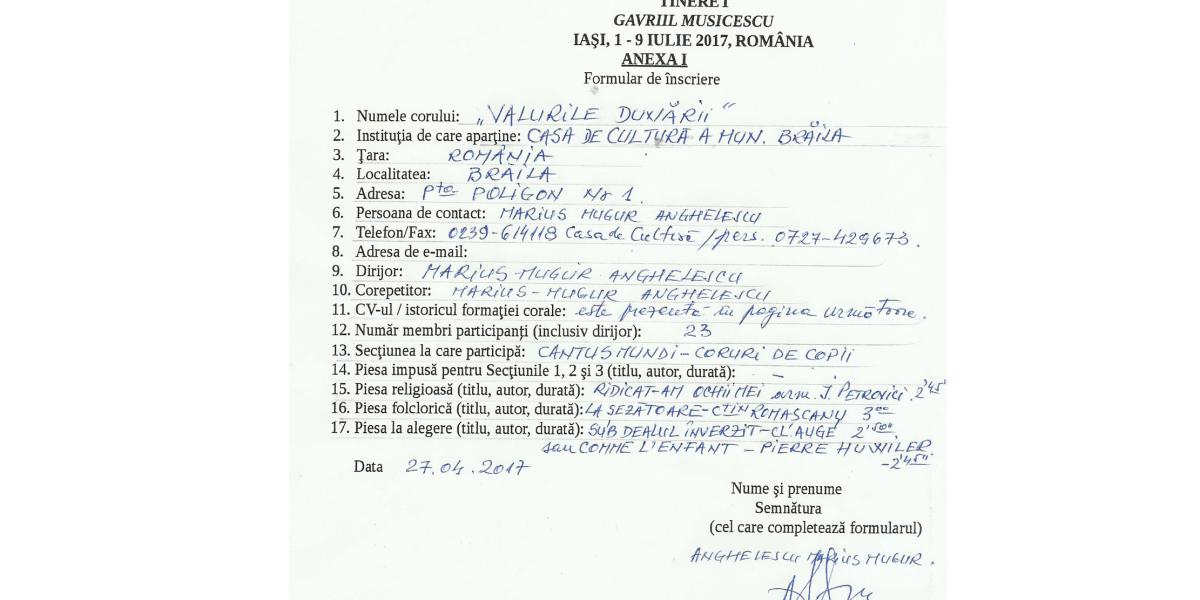 TINERET
GAVRIIL MUSICESCU
IAŞI, 1 - 9 IULIE 2017, ROMÂNIA
ANEXA I
Formular de înscriere
1. Numele corului: „VALURILE DUNĂRII”
2. Instituţia de care aparţine: CASA DE CULTURĂ A MUN. BRĂILA
3. Ţara: ROMÂNIA
4. Localitatea: BRĂILA
5. Adresa: Pța POLIGON Nr 1.
6. Persoana de contact: MARIUS MUGUR ANGHELESCU
7. Telefon/Fax: 0239-614118 Casa de Cultură /pers. 0727-429673.
8. Adresa de e-mail:
9. Dirijor: MARIUS-MUGUR ANGHELESCU
10. Corepetitor: MARIUS-MUGUR ANGHELESCU
11. CV-ul / istoricul formaţiei corale: este prezentă în pagina următoare.
12. Număr membri participanţi (inclusiv dirijor): 23
13. Secţiunea la care participă: CANTUS MUNDI-CORURI DE COPII
14. Piesa impusă pentru Secţiunile 1, 2 şi 3 (titlu, autor, durată): -
15. Piesa religioasă (titlu, autor, durată): RIDICAT-AM OCHII MEI arm. I. PETROVICI. 2'45"
16. Piesa folclorică (titlu, autor, durată): LA SEZATOARE-CTIN ROMASCANU 3'00
17. Piesa la alegere (titlu, autor, durată): SUB DEALUL ÎNVERZIT-CL'AUGE 2'50"
sau COMME L'ENFANT - PIERRE HUWILER
-2'45"
Data 27.04.2017
Nume şi prenume
Semnătura
(cel care completează formularul)
ANGHELESCU MARIUS MUGUR.